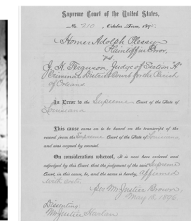 Supreme Court of the United States,
No. 210, October Term, 1895
Homer Adolph Plessy
Plaintiff in Error,
vs.
J. H. Ferguson, Judge of Section "A"
Criminal District Court for the Parish
of Orleans
In Error to the Supreme Court of the State of
Louisiana
This cause came on to be heard on the transcript of the
record from the Supreme Court of the State of Louisiana
and was argued by counsel.
On consideration whereof, It is now here ordered and
adjudged by this Court that the judgment of the said Supreme
Court, in this cause, be, and the same is hereby, affirmed
with costs.
per Mr. Justice Brown,
May 18, 1896.
Dissenting:
Mr. Justice Harlan